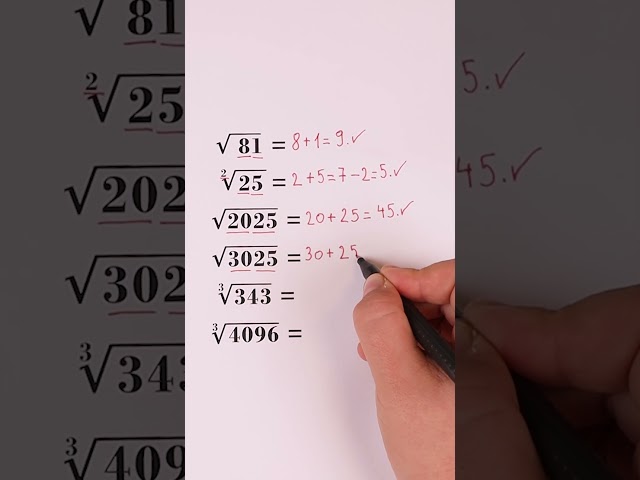 √81 = 8+1=9.✓
²√25 = 2+5=7-2=5.✓
√2025 = 20+25=45.✓
√3025 = 30+25
³√343 =
³√4096 =